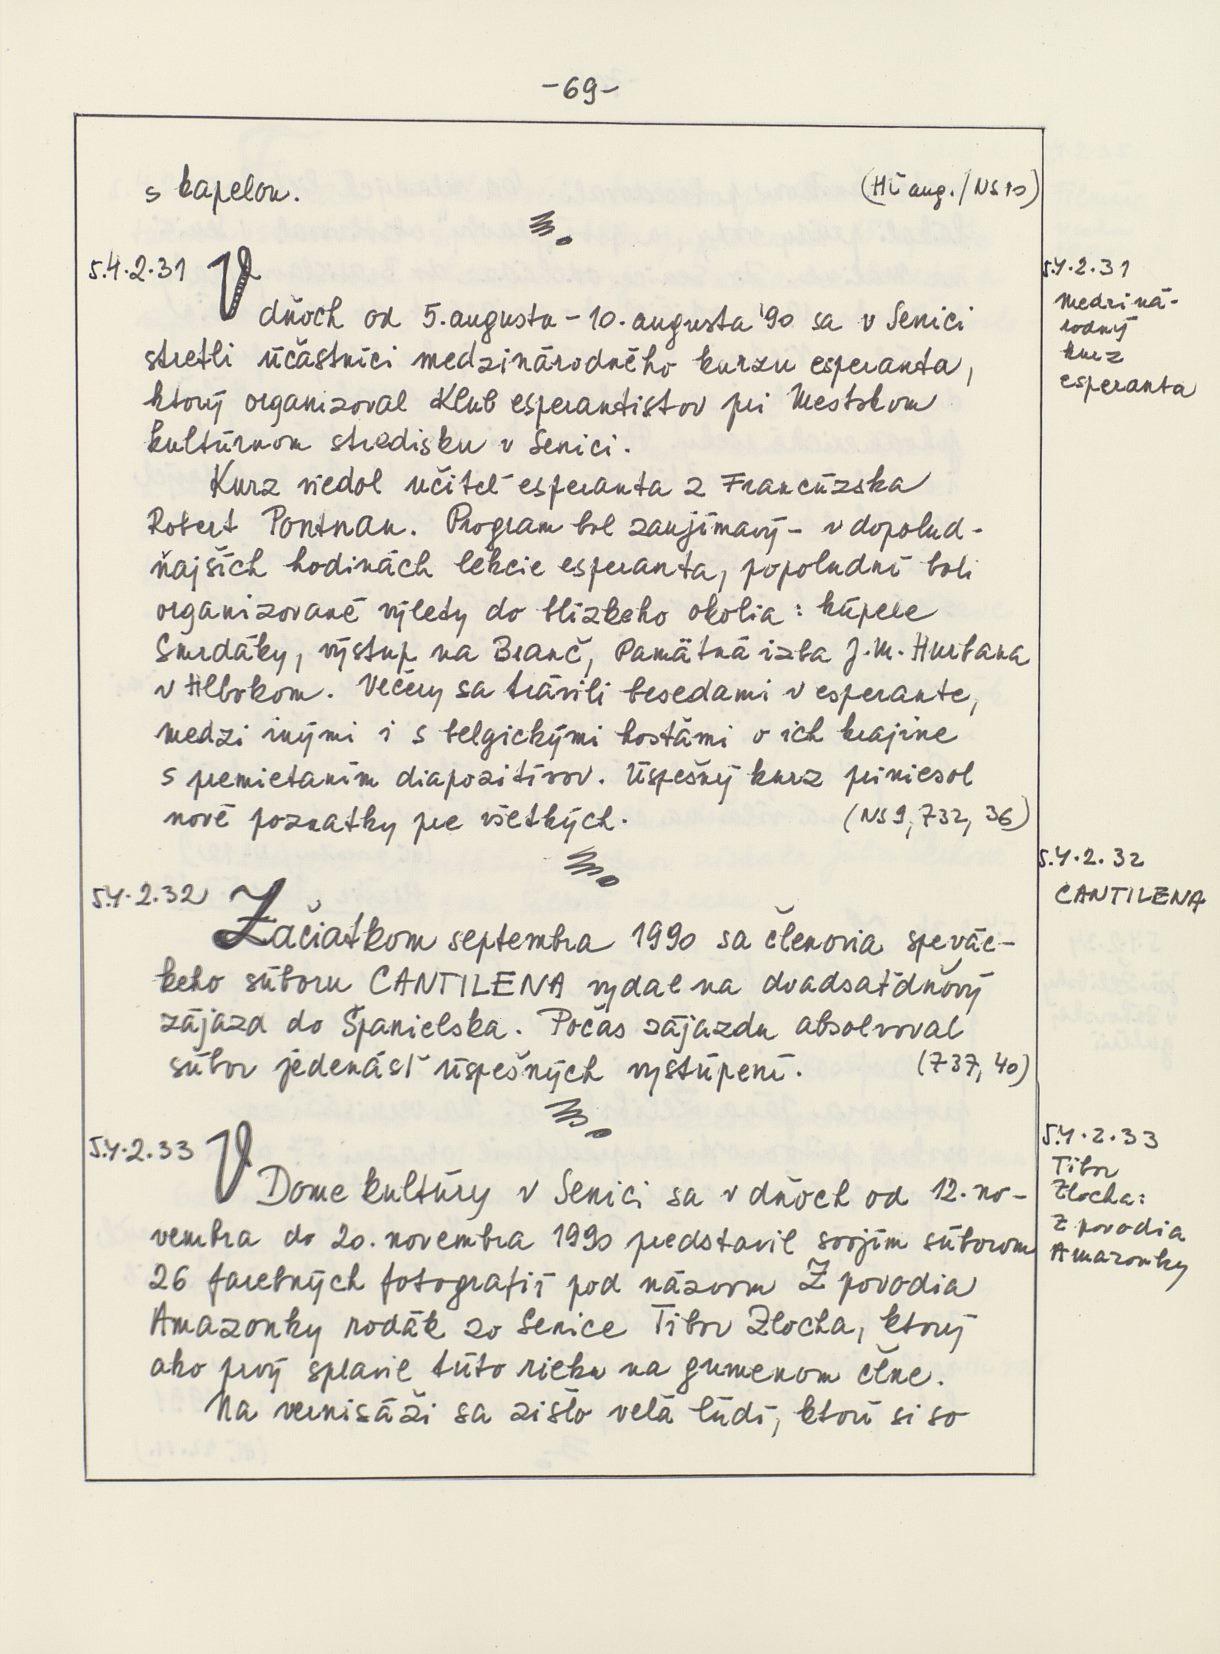 -69-
s kapelou.
(HÚ aug./NS10)
5.4.2.31
5.4.2.31
Mediná-
rodný
kurz
esperanta
V dňoch od 5. augusta - 10. augusta '90 sa v Senici
stretli účastníci medzinárodného kurzu esperanta,
ktorý organizoval Klub esperantistov pri Mestskom
kultúrnom stredisku v Senici.
Kurz viedol učiteľ esperanta z Francúzska
Robert Pontnau. Program bol zaujímavý - v dopolud-
ňajších hodinách lekcie esperanta, popoludní boli
organizované výlety do blízkeho okolia: kúpele
Smrdáky, výstup na Branč, Pamätná izba J. M. Hurbana
v Hlbokom. Večery sa trávili besedami v esperante,
medzi inými i s belgickými hosťami o ich krajine
s premietaním diapozitívov. Úspešný kurz priniesol
nové poznatky pre všetkých.
(NS9, 732, 36)
5.4.2.32
CANTILENA
5.4.2.32
Začiatkom septembra 1990 sa členovia speváč-
keho súboru CANTILENA vydal na dvadsaťdňový
zájazd do Španielska. Počas zájazdu absolvoval
súbor jedenásť úspešných vystúpení.
(737, 40)
5.4.2.33
5.4.2.33
Tibor
Zlocha:
Z povodia
Amazonky
V Dome kultúry v Senici sa v dňoch od 12. no-
vembra do 20. novembra 1990 predstavil svojím súborom
26 farebných fotografií pod názvom Z povodia
Amazonky rodák zo Senice Tibor Zlocha, ktorý
ako prvý splavil túto rieku na gumenom člne.
Na vernisáži sa zišlo veľa ľudí, ktorí si so